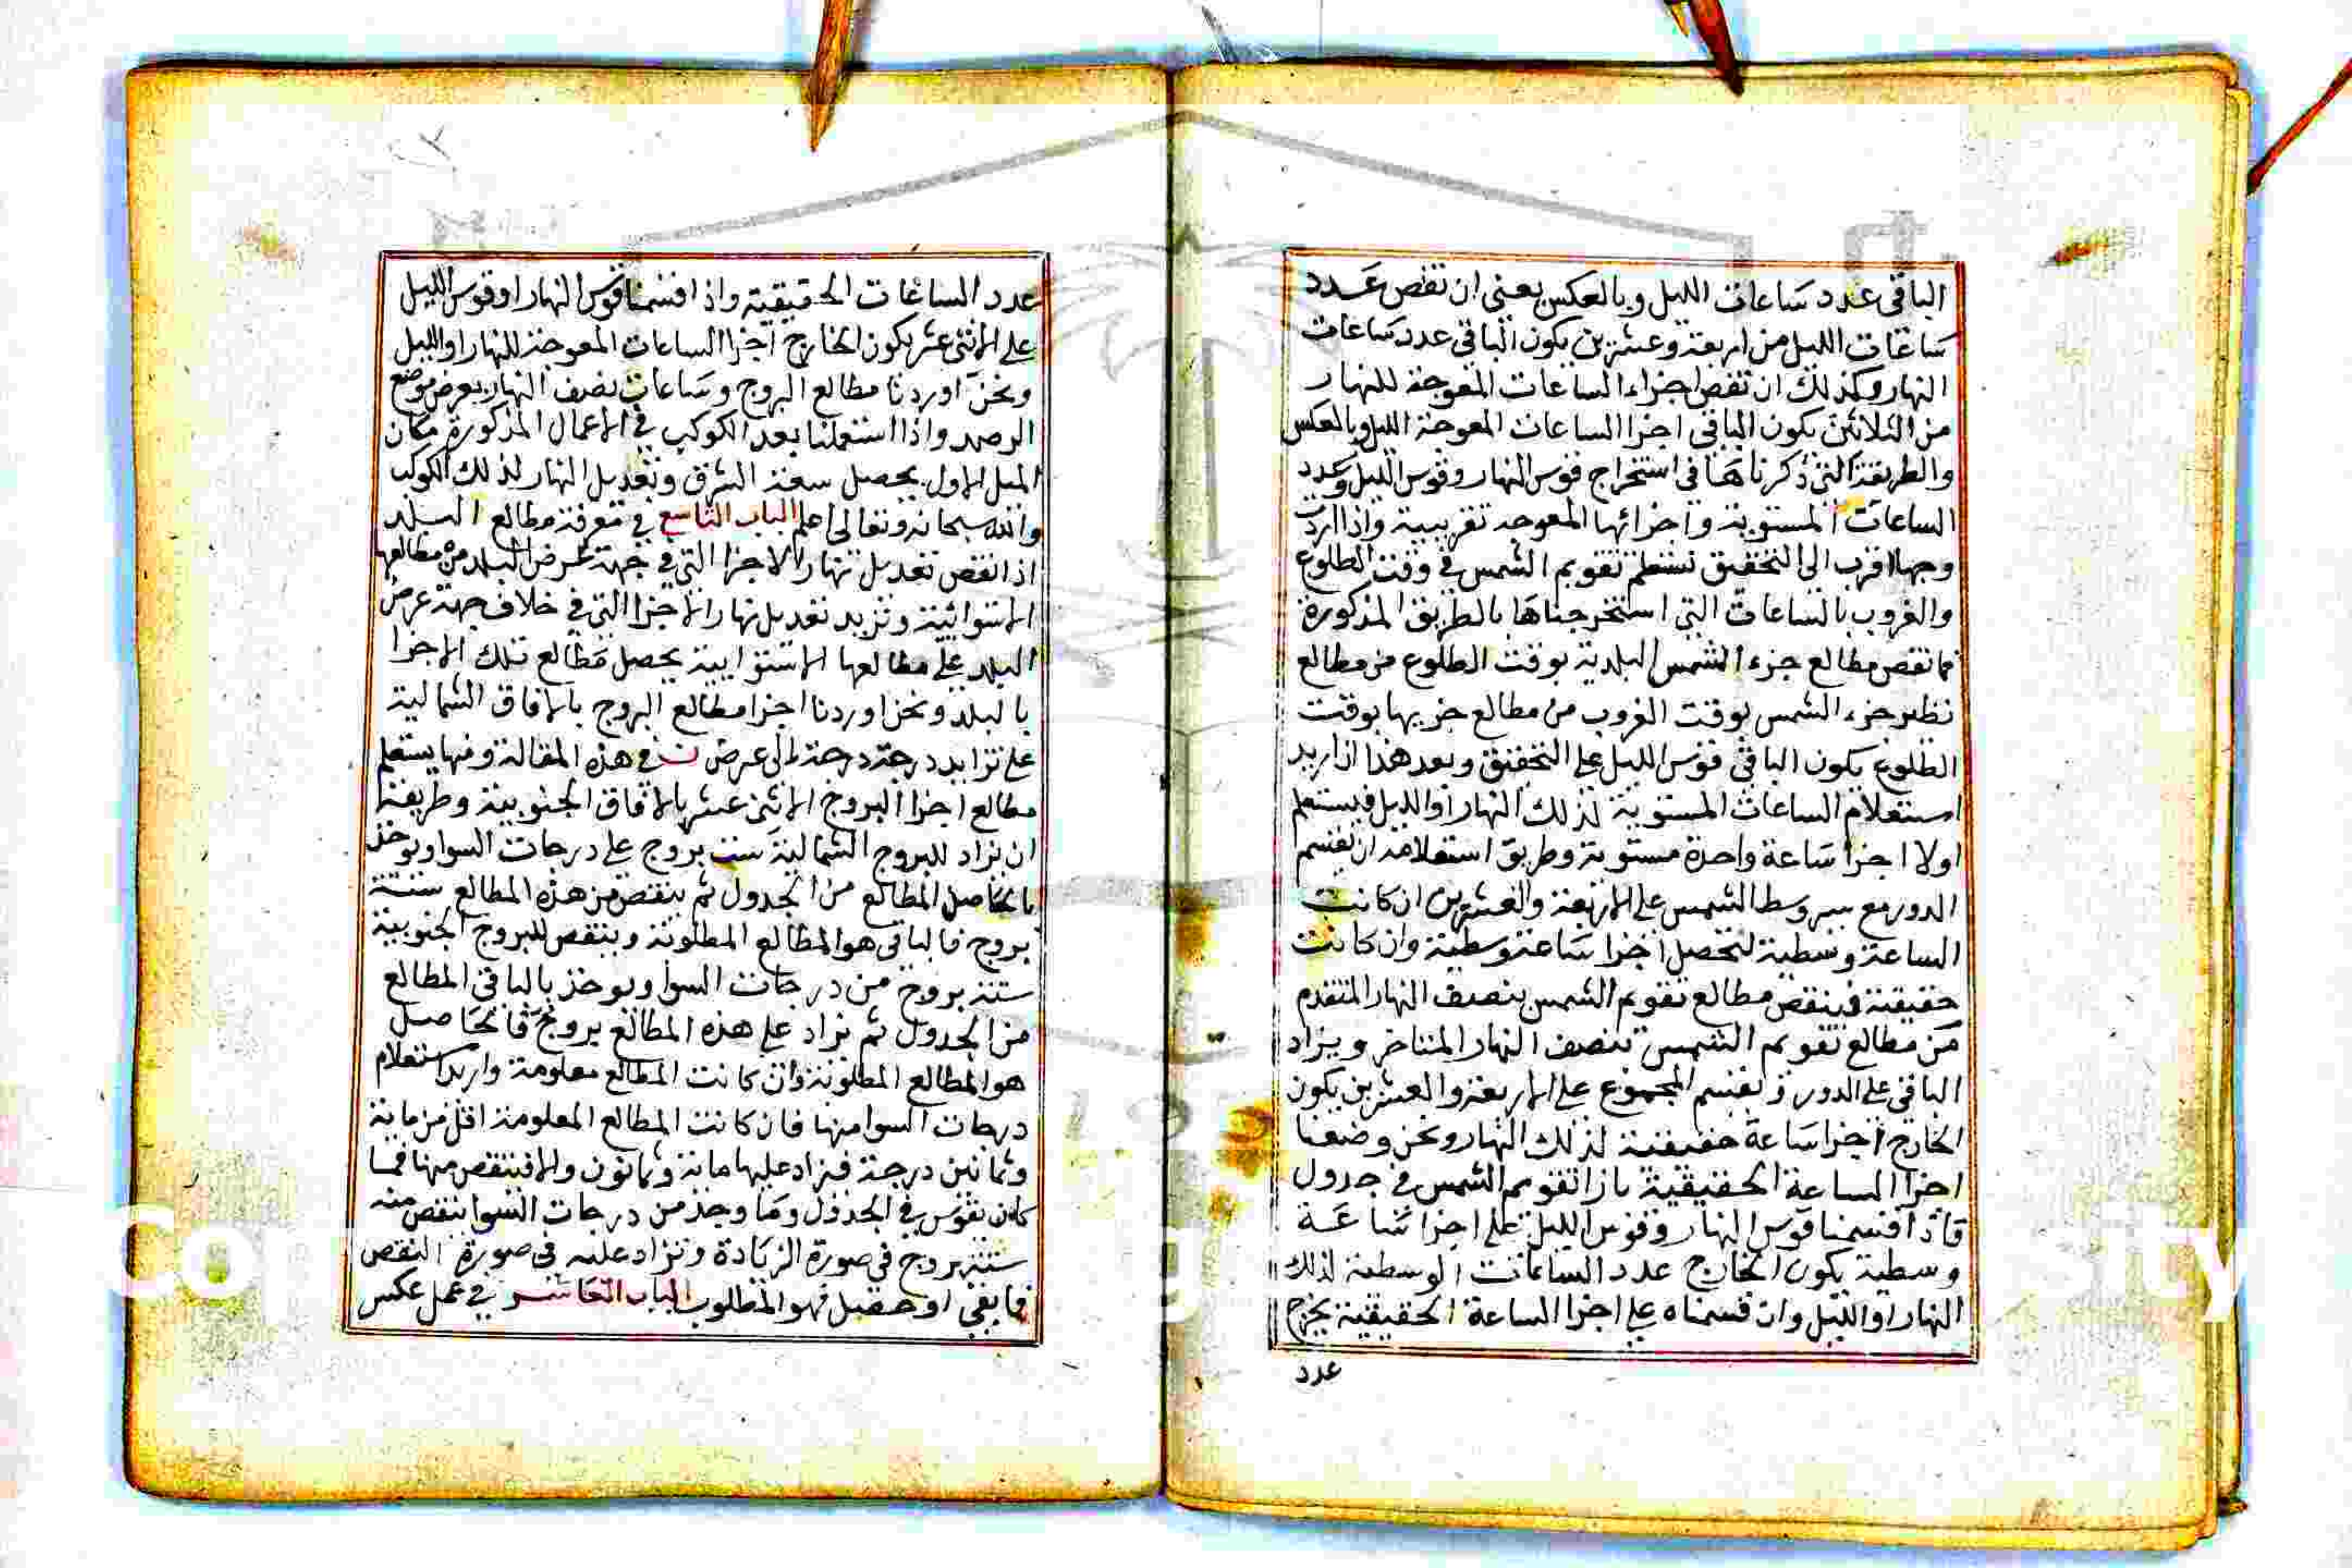 الباقى عدد ساعات الليل وبالعكس يعنى ان نقص عدد
ساعات الليل من اربعة وعشرين يكون الباقى عدد ساعات
النهار وكذلك ان نقص اجزاء الساعات المعوجة للنهار
من الثلاثين يكون الباقى اجزا الساعات المعوجة الليل وبالعكس
والطريقة التى ذكرناها فى استخراج قوس النهار وقوس الليل وعدد
الساعات المستوية واجزائها المعوجه تقريبية واذا اردت
وجها اقرب الى التحقيق نستعلم تقويم الشمس فى وقت الطلوع
والغروب بالساعات التى استخرجناها بالطريق المذكورة
فما نقص مطالع جزء الشمس البلدية بوقت الطلوع من مطالع
نظير جزء الشمس بوقت الغروب من مطالع جزيها بوقت
الطلوع يكون الباقى قوس الليل على التحقيق وبعد هذا اذا اريد
استعلام الساعات المستوية لذلك النهار او الليل فيستعلم
اولا اجزا ساعة واحدة مستوية وطريق استعلامه ان نقسم
الدور مع سير وسط الشمس على الاربعة والعشرين ان كانت
الساعة وسطية لتحصل اجزا ساعة وسطية وان كانت
حقيقية فينقص مطالع تقويم الشمس بنصف النهار المتقدم
من مطالع تقويم الشمس بنصف النهار المتاخر ويزاد
الباقى على الدور ونقسم المجموع على الاربعة والعشرين يكون
الخارج اجزا ساعة حقيقية لذلك النهار ونحن وضعنا
اجزا الساعة الحقيقية بازا تقويم الشمس فى جدول
فاذا قسمنا قوس النهار وقوس الليل على اجزا ساعة
وسطية يكون الخارج عدد الساعات الوسطية لذلك
النهار او الليل وان قسمناه على اجزا الساعة الحقيقية يخرج
عدد
عدد الساعات الحقيقية واذا قسمنا قوس النهار او قوس الليل
على الاثنى عشر يكون الخارج اجزا الساعات المعوجة للنهار او الليل
ونحن اوردنا مطالع البروج وساعات نصف النهار بعرض موضع
الرصد واذا استعملنا بعد الكوكب فى الاعمال المذكورة مكان
الميل الاول يحصل سعة المشرق وتعديل النهار لذلك الكوكب
والله سبحانه وتعالى اعلم الباب التاسع فى معرفة مطالع البلد
اذا نقص تعديل نهار الاجزا التى فى جهة عرض البلد من مطالعها
الاستوائية ونزيد تعديل نهار الاجزا التى فى خلاف جهة عرض
البلد على مطالعها الاستوايية يحصل مطالع تلك الاجزا
بالبلد ونحن اوردنا اجزا مطالع البروج بالافاق الشمالية
على تزايد درجة درجة الى عرض ن فى هذه المقالة ومنها يستعلم
مطالع اجزا البروج الاثنى عشر بالافاق الجنوبية وطريقها
ان نزاد للبروج الشمالية ست بروج على درجات السوا ويوخذ
بالحاصل المطالع من الجدول ثم ينقص من هذه المطالع ستة
بروج فالباقى هو المطالع المطلوبة وينقص للبروج الجنوبية
ستة بروج من درجات السوا ويوخذ بالباقى المطالع
من الجدول ثم نزاد على هذه المطالع بروج فالحاصل
هو المطالع المطلوبة وان كانت المطالع معلومة واريد استعلام
درجات السوا منها فان كانت المطالع المعلومة اقل من ماية
وثمانين درجة فنزاد عليها ماية وثمانون والا فينقص منها فما
كان نقوس فى الجدول وما وجد من درجات السوا ينقص منه
ستة بروج فى صورة الزيادة ونزاد عليه فى صورة النقص
فما بقى او حصل فهو المطلوب الباب العاشر فى عمل عكس